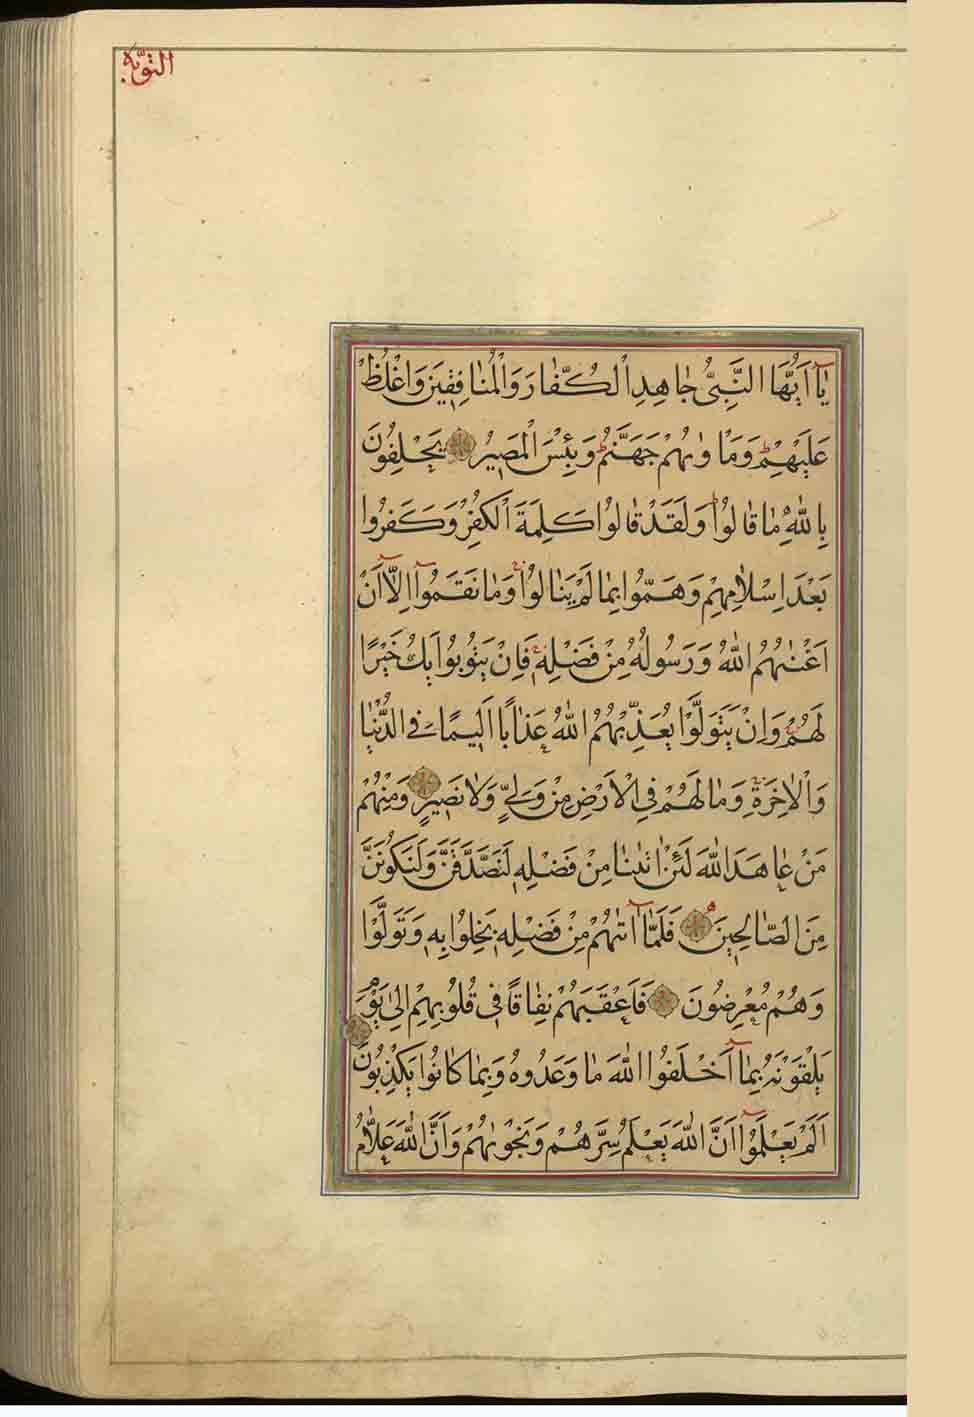 التوبة
يَٓا اَيُّهَا النَّبِيُّ جَاهِدِ الْكُفَّارَ وَالْمُنَافِقِينَ وَاغْلُظْ
عَلَيْهِمْ وَمَاْوٰيهُمْ جَهَنَّمُ وَبِئْسَ الْمَصِيرُ يَحْلِفُونَ
بِاللّٰهِ مَا قَالُوا وَلَقَدْ قَالُوا كَلِمَةَ الْكُفْرِ وَكَفَرُوا
بَعْدَ اِسْلَامِهِمْ وَهَمُّوا بِمَا لَمْ يَنَالُوا وَمَا نَقَمُٓوا اِلَّٓا اَنْ
اَغْنٰيهُمُ اللّٰهُ وَرَسُولُهُ مِنْ فَضْلِهِ فَاِنْ يَتُوبُوا يَكُ خَيْرًا
لَهُمْ وَاِنْ يَتَوَلَّوْا يُعَذِّبْهُمُ اللّٰهُ عَذَابًا اَلِيمًا فِي الدُّنْيَا
وَالْاٰخِرَةِ وَمَا لَهُمْ فِي الْاَرْضِ مِنْ وَلِيٍّ وَلَا نَصِيرٍ وَمِنْهُمْ
مَنْ عَاهَدَ اللّٰهَ لَئِنْ اٰتٰينَا مِنْ فَضْلِهِ لَنَصَّدَّقَنَّ وَلَنَكُونَنَّ
مِنَ الصَّالِحِينَ فَلَمَّٓا اٰتٰيهُمْ مِنْ فَضْلِهِ بَخِلُوا بِهِ وَتَوَلَّوْا
وَهُمْ مُعْرِضُونَ فَاَعْقَبَهُمْ نِفَاقًا فِي قُلُوبِهِمْ اِلٰى يَوْمِ
يَلْقَوْنَهُ بِمَٓا اَخْلَفُوا اللّٰهَ مَا وَعَدُوهُ وَبِمَا كَانُوا يَكْذِبُونَ
اَلَمْ يَعْلَمُٓوا اَنَّ اللّٰهَ يَعْلَمُ سِرَّهُمْ وَنَجْوٰيهُمْ وَاَنَّ اللّٰهَ عَلَّامُ